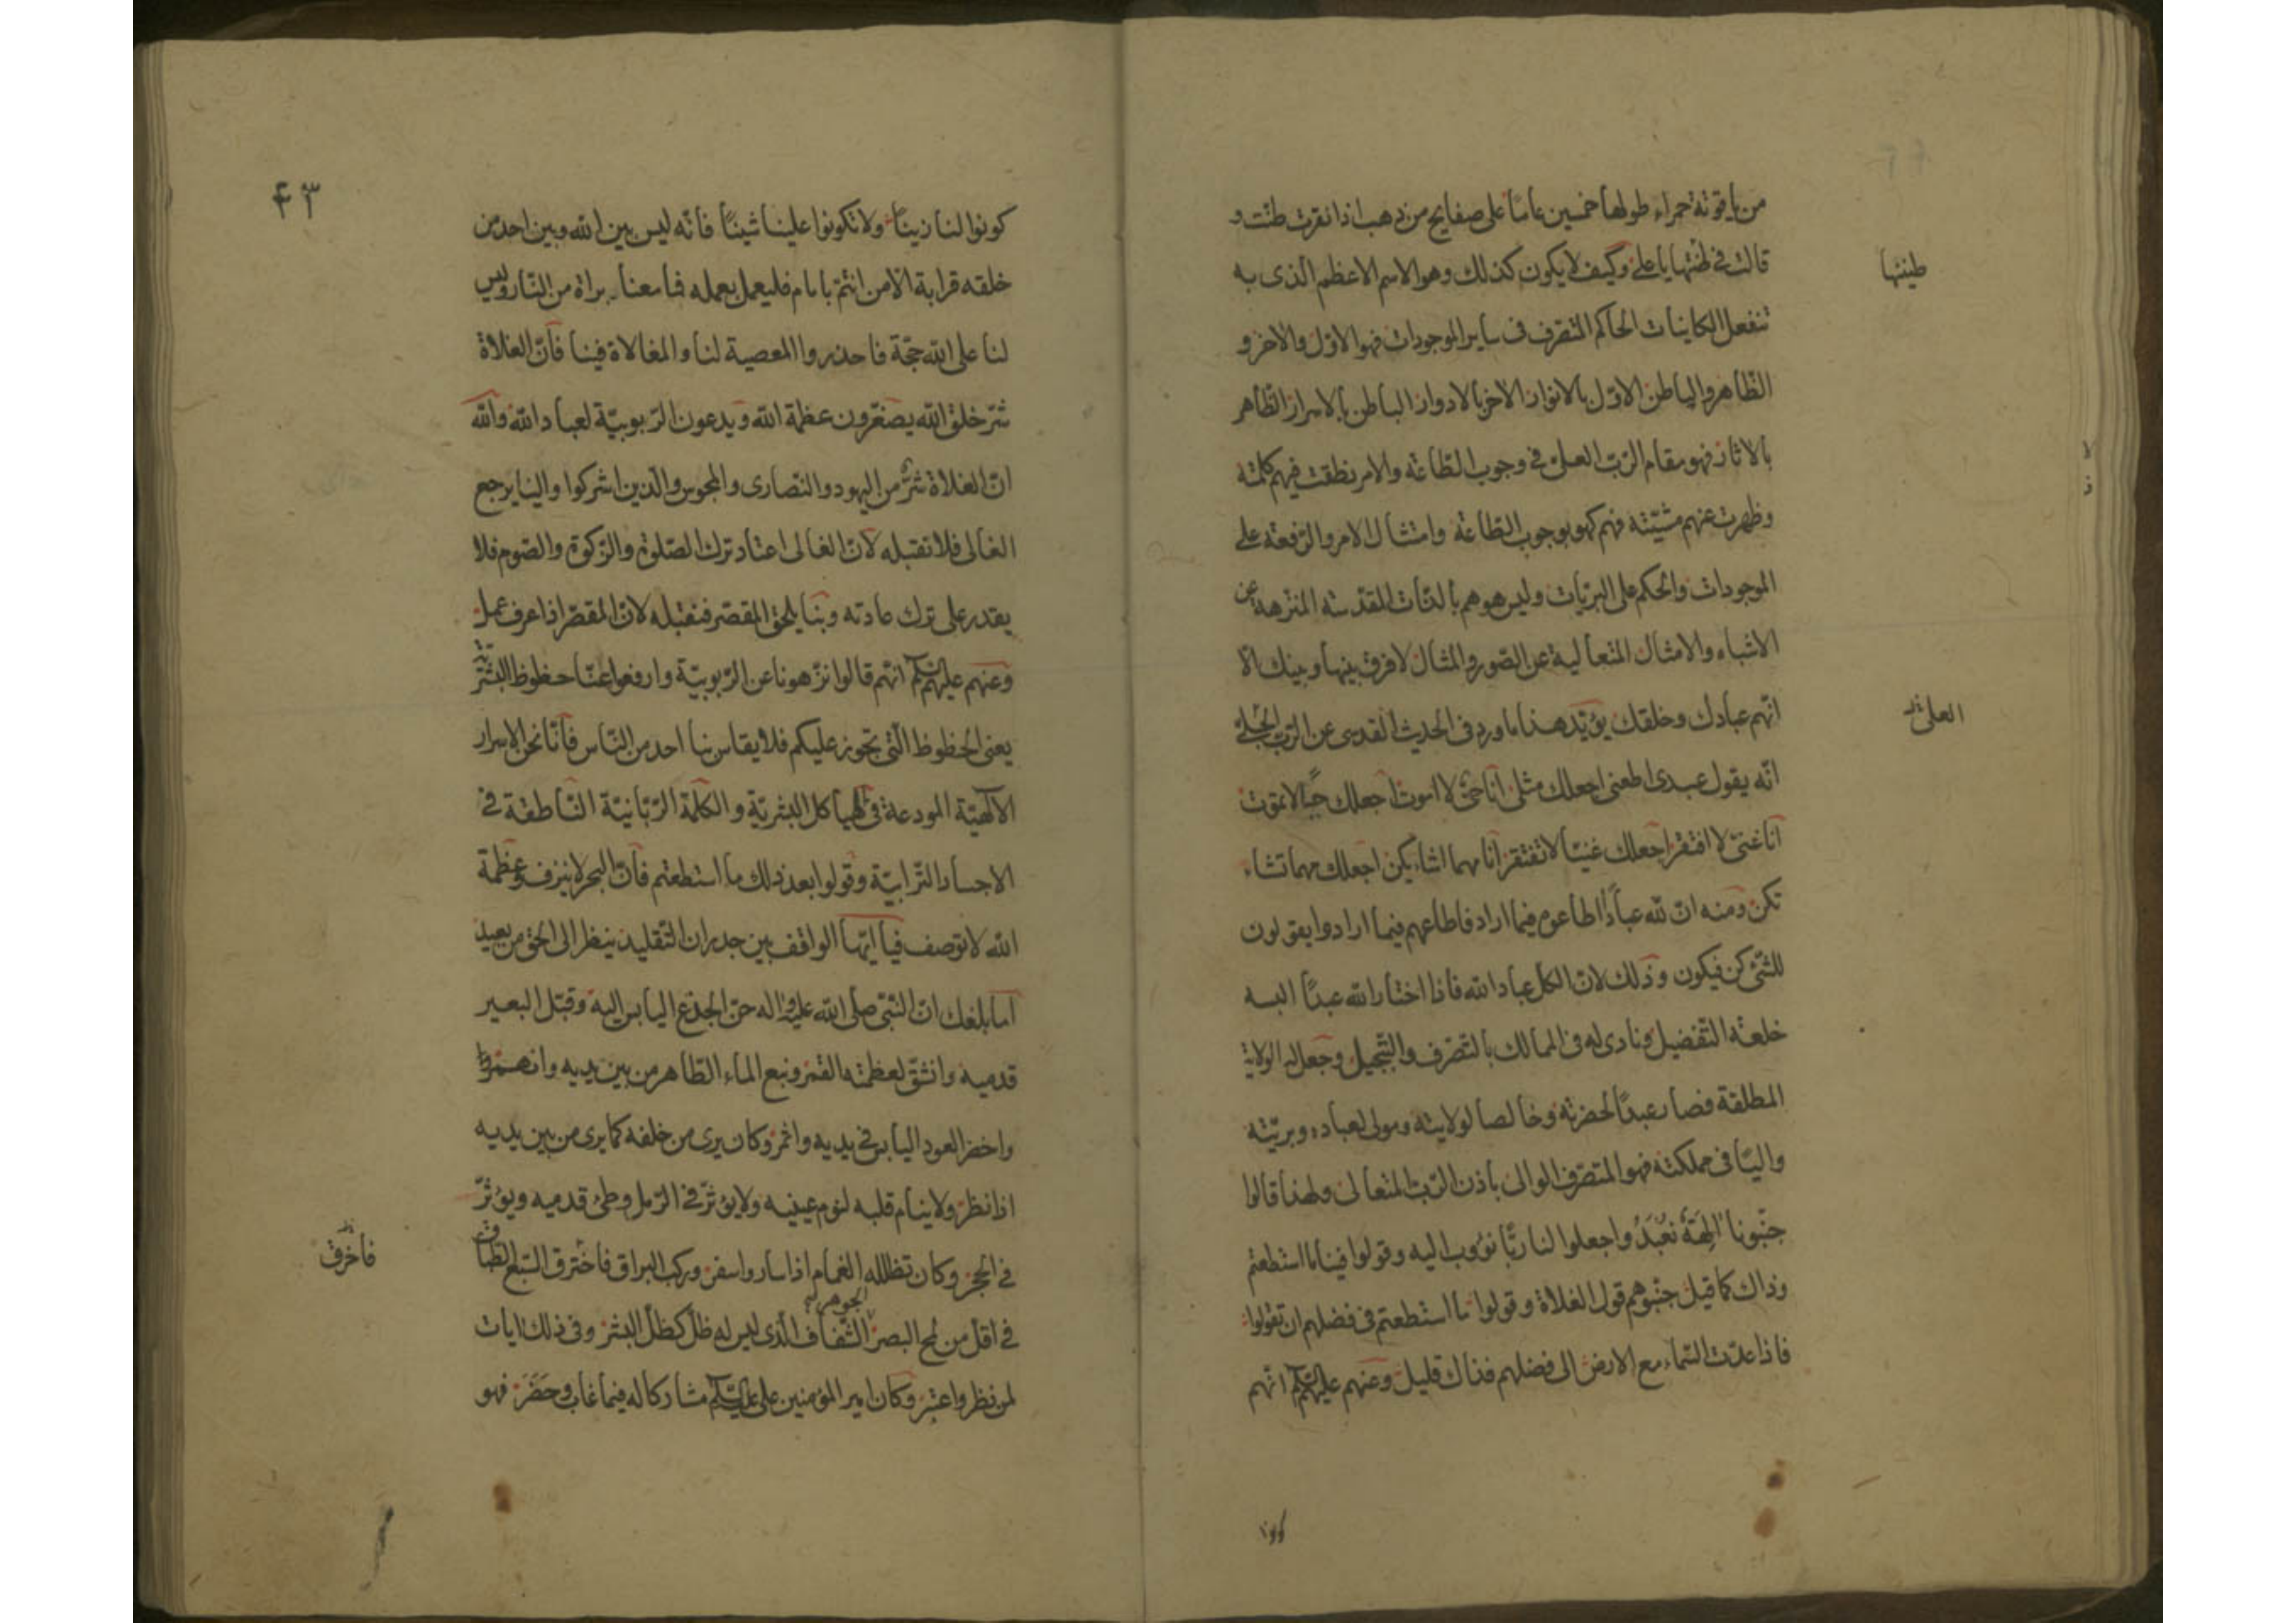 من ياقوتة حمراء طولها خمسين عاماً على صفايح من ذهب اذا نقرت طنّت و
قالت فى طنتها يا علىّ وكيف لا يكون كذلك وهو الاسم الاعظم الّذى به
طنينها
تنفعل الكاينات الحاكم المتصرف فى ساير الموجودات فهو الاوّل والاخر و
الظّاهر والباطن الاوّل بالانوار الاخر بالادوار الباطن بالاسرار الظّاهر
بالاثار فهو مقام الرّبّ العلىّ فى وجوب الطّاعة والامر نطقت فيهم كلمته
وظهرت عنهم مشيّته فهم كهو بوجوب الطّاعة وامتثال الامر والرّفعة على
الموجودات والحكم على البريّات وليس هو هم بالذّات المقدّسة المنزهة عن
الاشباه والامثال المتعالية عن الصّور والمثال لا فرق بينها وبينك الّا
انّهم عبادك وخلقك يؤيّد هذا ما ورد فى الحديث القدسى عن الرّبّ الجليل
العلى
انّه يقول عبدى اطعنى اجعلك مثلى انا حىّ لا اموت اجعلك حيّاً لا تموت
انا غنىّ لا افتقر اجعلك غنيّاً لا تفتقر انا مهما اشاء يكن اجعلك مهما تشاء
تكن ومنه انّ للّه عباداً اطاعوه فيما اراد فاطاعهم فيما ارادوا يقولون
للشّئ كن فيكون وذلك لانّ الكل عباد الله فاذا اختار الله عبداً البسه
خلعة التّفضيل ونادى له فى الممالك بالتّصرّف والتّبجيل وجعل له الولاية
المطلقة فصار عبداً لحضرته وخالصا لولايته ومولى لعباده وبريّته
واليّا فى مملكته فهو المتصّرف الوالى باذن الرّبّ المتعالى ولهذا قالوا
جنّبونا الِهَةً تُعْبَدُ واجعلوا لنا ربّاً نؤوب اليه وقولوا فينا ما استطعتم
وذاك كما قيل جنّبوهم قول الغلاة وقولوا ما استطعتم فى فضلهم ان تقولوا
فاذا عدّت السّماء مع الارض الى فضلهم فذاك قليل وعنهم عليهم السّلم انّهم
كونوا
٤٣
كونوا لنا زيناً ولا تكونوا علينا شيناً فانّه ليس بين الله وبين احد من
خلقه قرابة الّا من ائتمّ بامام فليعمل بعمله فما معنا براة من النّار وليس
لنا على الله حجّة فاحذروا المعصية لنا والمغالاة فينا فانّ الغلاة
شرّ خلق الله يصغّرون عظمة الله ويدعون الرّبوبيّة لعباد الله والله
انّ الغلاة شرٌّ من اليهود والنّصارى والمجوس والّذين اشركوا والينا يرجع
الغالى فلا نقبله لانّ الغالى اعتاد ترك الصّلوة والزّكوة والصّوم فلا
يقدر على ترك عادته وبنا يلحق المقصّر فنقبله لانّ المقصّر اذا عرف عمل
وعنهم عليهم السّلم انّهم قالوا نزّهونا عن الرّبوبيّة وارفعوا عنّا حظوظ البشريّة
يعنى الحظوظ الّتى تجوز عليكم فلا يقاس بنا احد من النّاس فانّا نحن الاسرار
الالهيّة المودعة فى الهياكل البشريّة والكلمة الرّبّانيّة النّاطقة فى
الاجساد التّرابيّة وقولوا بعد ذلك ما استطعتم فانّ البحر لا ينزف وعظمة
الله لا توصف فيا ايّها الواقف بين جدران التّقليد ينظر الى الحق من بعيد
اما بلغك انّ النّبىّ صلّى الله عليه واله حنّ الجذع اليابس اليه وقبّل البعير
قدميه وانشقّ لعظمته القمر ونبع الماء الطّاهر من بين يديه
واخضر العود اليابس فى يديه واثمر وكان يرى من خلفه كما يرى من بين يديه
اذا نظر ولا ينام قلبه لنوم عينيه ولا يؤثّر فى الرّمل وطئ قدميه ويؤثّر
فى الحجر وكان تظلله الغمام اذا سار واسفر وركب البراق فاخترق السّبع الطّباق
فاخرق
فى اقل من لمح البصر الجوهر الشّفاف الّذى ليس له ظلّ كظلّ البشر وفى ذلك ايات
لمن نظر واعتبر وكان امير المؤمنين على عليه السّلم مشاركا له فيما غاب وحَضَرَ فهو